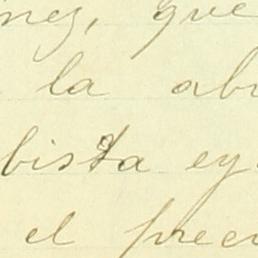 nez, que
la abu
bista ey
el prec